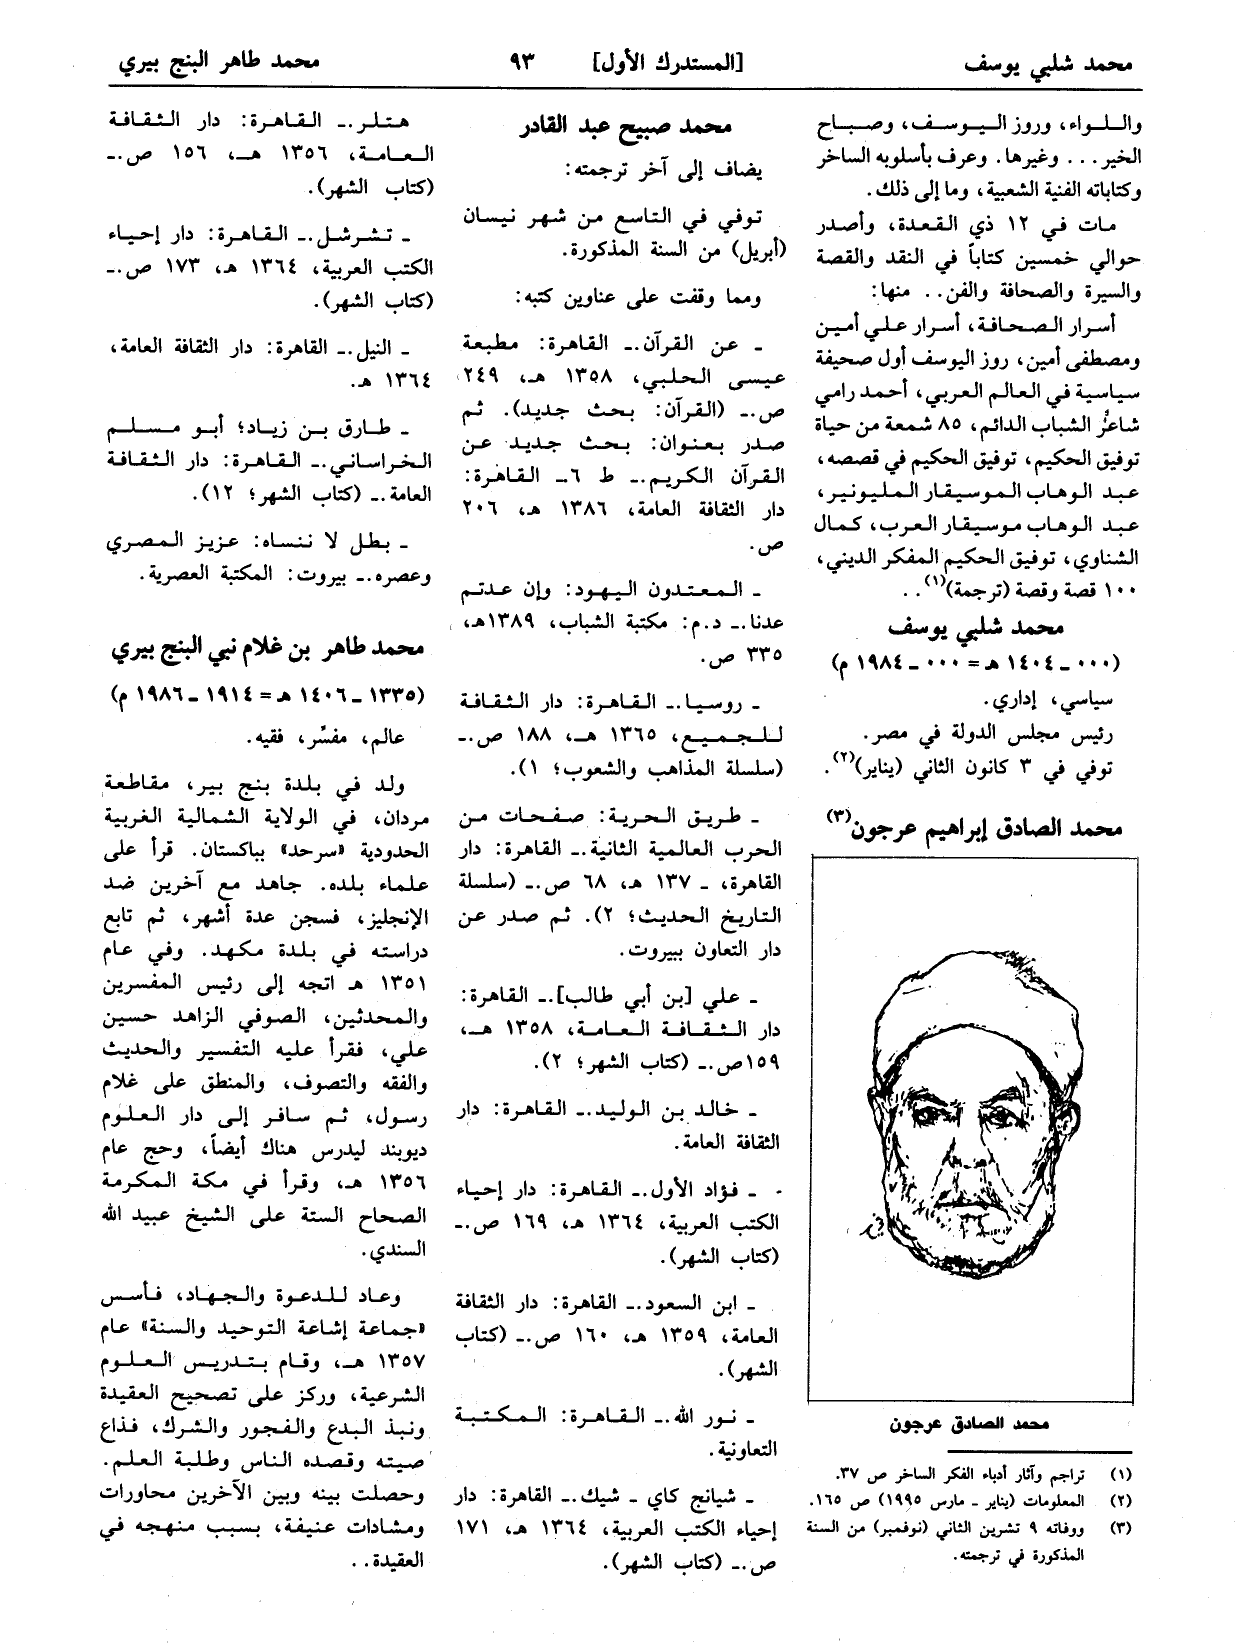 محمد شلبي يوسف [المستدرك الأول] ٩٣ محمد طاهر البنج بيري
واللواء، وروز اليوسف، وصباح
الخير... وغيرها. وعرف بأسلوبه الساخر
وكتاباته الفنية الشعبية، وما إلى ذلك.
مات في ١٢ ذي القعدة، وأصدر
حوالي خمسين كتاباً في النقد والقصة
والسيرة والصحافة والفن.. منها:
أسرار الصحافة، أسرار علي أمين
ومصطفى أمين، روز اليوسف أول صحيفة
سياسية في العالم العربي، أحمد رامي
شاعرُ الشباب الدائم، ٨٥ شمعة من حياة
توفيق الحكيم، توفيق الحكيم في قصصه،
عبد الوهاب الموسيقار المليونير،
عبد الوهاب موسيقار العرب، كمال
الشناوي، توفيق الحكيم المفكر الديني،
١٠٠ قصة وقصة (ترجمة)(١)..
محمد شلبي يوسف
(٠٠٠ ـ ١٤٠٤ هـ = ٠٠٠ ـ ١٩٨٤ م)
سياسي، إداري.
رئيس مجلس الدولة في مصر.
توفي في ٣ كانون الثاني (يناير)(٢).
محمد الصادق إبراهيم عرجون(٣)
محمد الصادق عرجون
(١) تراجم وآثار أدباء الفكر الساخر ص ٣٧.
(٢) المعلومات (يناير ـ مارس ١٩٩٥) ص ١٦٥.
(٣) ووفاته ٩ تشرين الثاني (نوفمبر) من السنة
المذكورة في ترجمته.
محمد صبيح عبد القادر
يضاف إلى آخر ترجمته:
توفي في التاسع من شهر نيسان
(أبريل) من السنة المذكورة.
ومما وقفت على عناوين كتبه:
ـ عن القرآن.ـ القاهرة: مطبعة
عيسى الحلبي، ١٣٥٨ هـ، ٢٤٩
ص.ـ (القرآن: بحث جديد). ثم
صدر بعنوان: بحث جديد عن
القرآن الكريم.ـ ط ٦ـ القاهرة:
دار الثقافة العامة، ١٣٨٦ هـ، ٢٠٦
ص.
ـ المعتدون اليهود: وإن عدتم
عدنا.ـ د.م: مكتبة الشباب، ١٣٨٩هـ،
٣٣٥ ص.
ـ روسيا.ـ القاهرة: دار الثقافة
للجميع، ١٣٦٥ هـ، ١٨٨ ص.ـ
(سلسلة المذاهب والشعوب؛ ١).
ـ طريق الحرية: صفحات من
الحرب العالمية الثانية.ـ القاهرة: دار
القاهرة، ـ ١٣٧ هـ، ٦٨ ص.ـ (سلسلة
التاريخ الحديث؛ ٢). ثم صدر عن
دار التعاون ببيروت.
ـ علي [بن أبي طالب].ـ القاهرة:
دار الثقافة العامة، ١٣٥٨ هـ،
١٥٩ص.ـ (كتاب الشهر؛ ٢).
ـ خالد بن الوليد.ـ القاهرة: دار
الثقافة العامة.
ـ فؤاد الأول.ـ القاهرة: دار إحياء
الكتب العربية، ١٣٦٤ هـ، ١٦٩ ص.ـ
(كتاب الشهر).
ـ ابن السعود.ـ القاهرة: دار الثقافة
العامة، ١٣٥٩ هـ، ١٦٠ ص.ـ (كتاب
الشهر).
ـ نور الله.ـ القاهرة: المكتبة
التعاونية.
ـ شيانج كاي ـ شيك.ـ القاهرة: دار
إحياء الكتب العربية، ١٣٦٤ هـ، ١٧١
ص.ـ (كتاب الشهر).
هتلر.ـ القاهرة: دار الثقافة
العامة، ١٣٥٦ هـ، ١٥٦ ص.ـ
(كتاب الشهر).
ـ تشرشل.ـ القاهرة: دار إحياء
الكتب العربية، ١٣٦٤ هـ، ١٧٣ ص.ـ
(كتاب الشهر).
ـ النيل.ـ القاهرة: دار الثقافة العامة،
١٣٦٤ هـ.
ـ طارق بن زياد؛ أبو مسلم
الخراساني.ـ القاهرة: دار الثقافة
العامة.ـ (كتاب الشهر؛ ١٢).
ـ بطل لا ننساه: عزيز المصري
وعصره.ـ بيروت: المكتبة العصرية.
محمد طاهر بن غلام نبي البنج بيري
(١٣٣٥ ـ ١٤٠٦ هـ = ١٩١٤ ـ ١٩٨٦ م)
عالم، مفسِّر، فقيه.
ولد في بلدة بنج بير، مقاطعة
مردان، في الولاية الشمالية الغربية
الحدودية «سرحد» بباكستان. قرأ على
علماء بلده. جاهد مع آخرين ضد
الإنجليز، فسجن عدة أشهر، ثم تابع
دراسته في بلدة مكهد. وفي عام
١٣٥١ هـ اتجه إلى رئيس المفسرين
والمحدثين، الصوفي الزاهد حسين
علي، فقرأ عليه التفسير والحديث
والفقه والتصوف، والمنطق على غلام
رسول، ثم سافر إلى دار العلوم
ديوبند ليدرس هناك أيضاً، وحج عام
١٣٥٦ هـ، وقرأ في مكة المكرمة
الصحاح الستة على الشيخ عبيد الله
السندي.
وعاد للدعوة والجهاد، فأسس
«جماعة إشاعة التوحيد والسنة» عام
١٣٥٧ هـ، وقام بتدريس العلوم
الشرعية، وركز على تصحيح العقيدة
ونبذ البدع والفجور والشرك، فذاع
صيته وقصده الناس وطلبة العلم.
وحصلت بينه وبين الآخرين محاورات
ومشادات عنيفة، بسبب منهجه في
العقيدة..